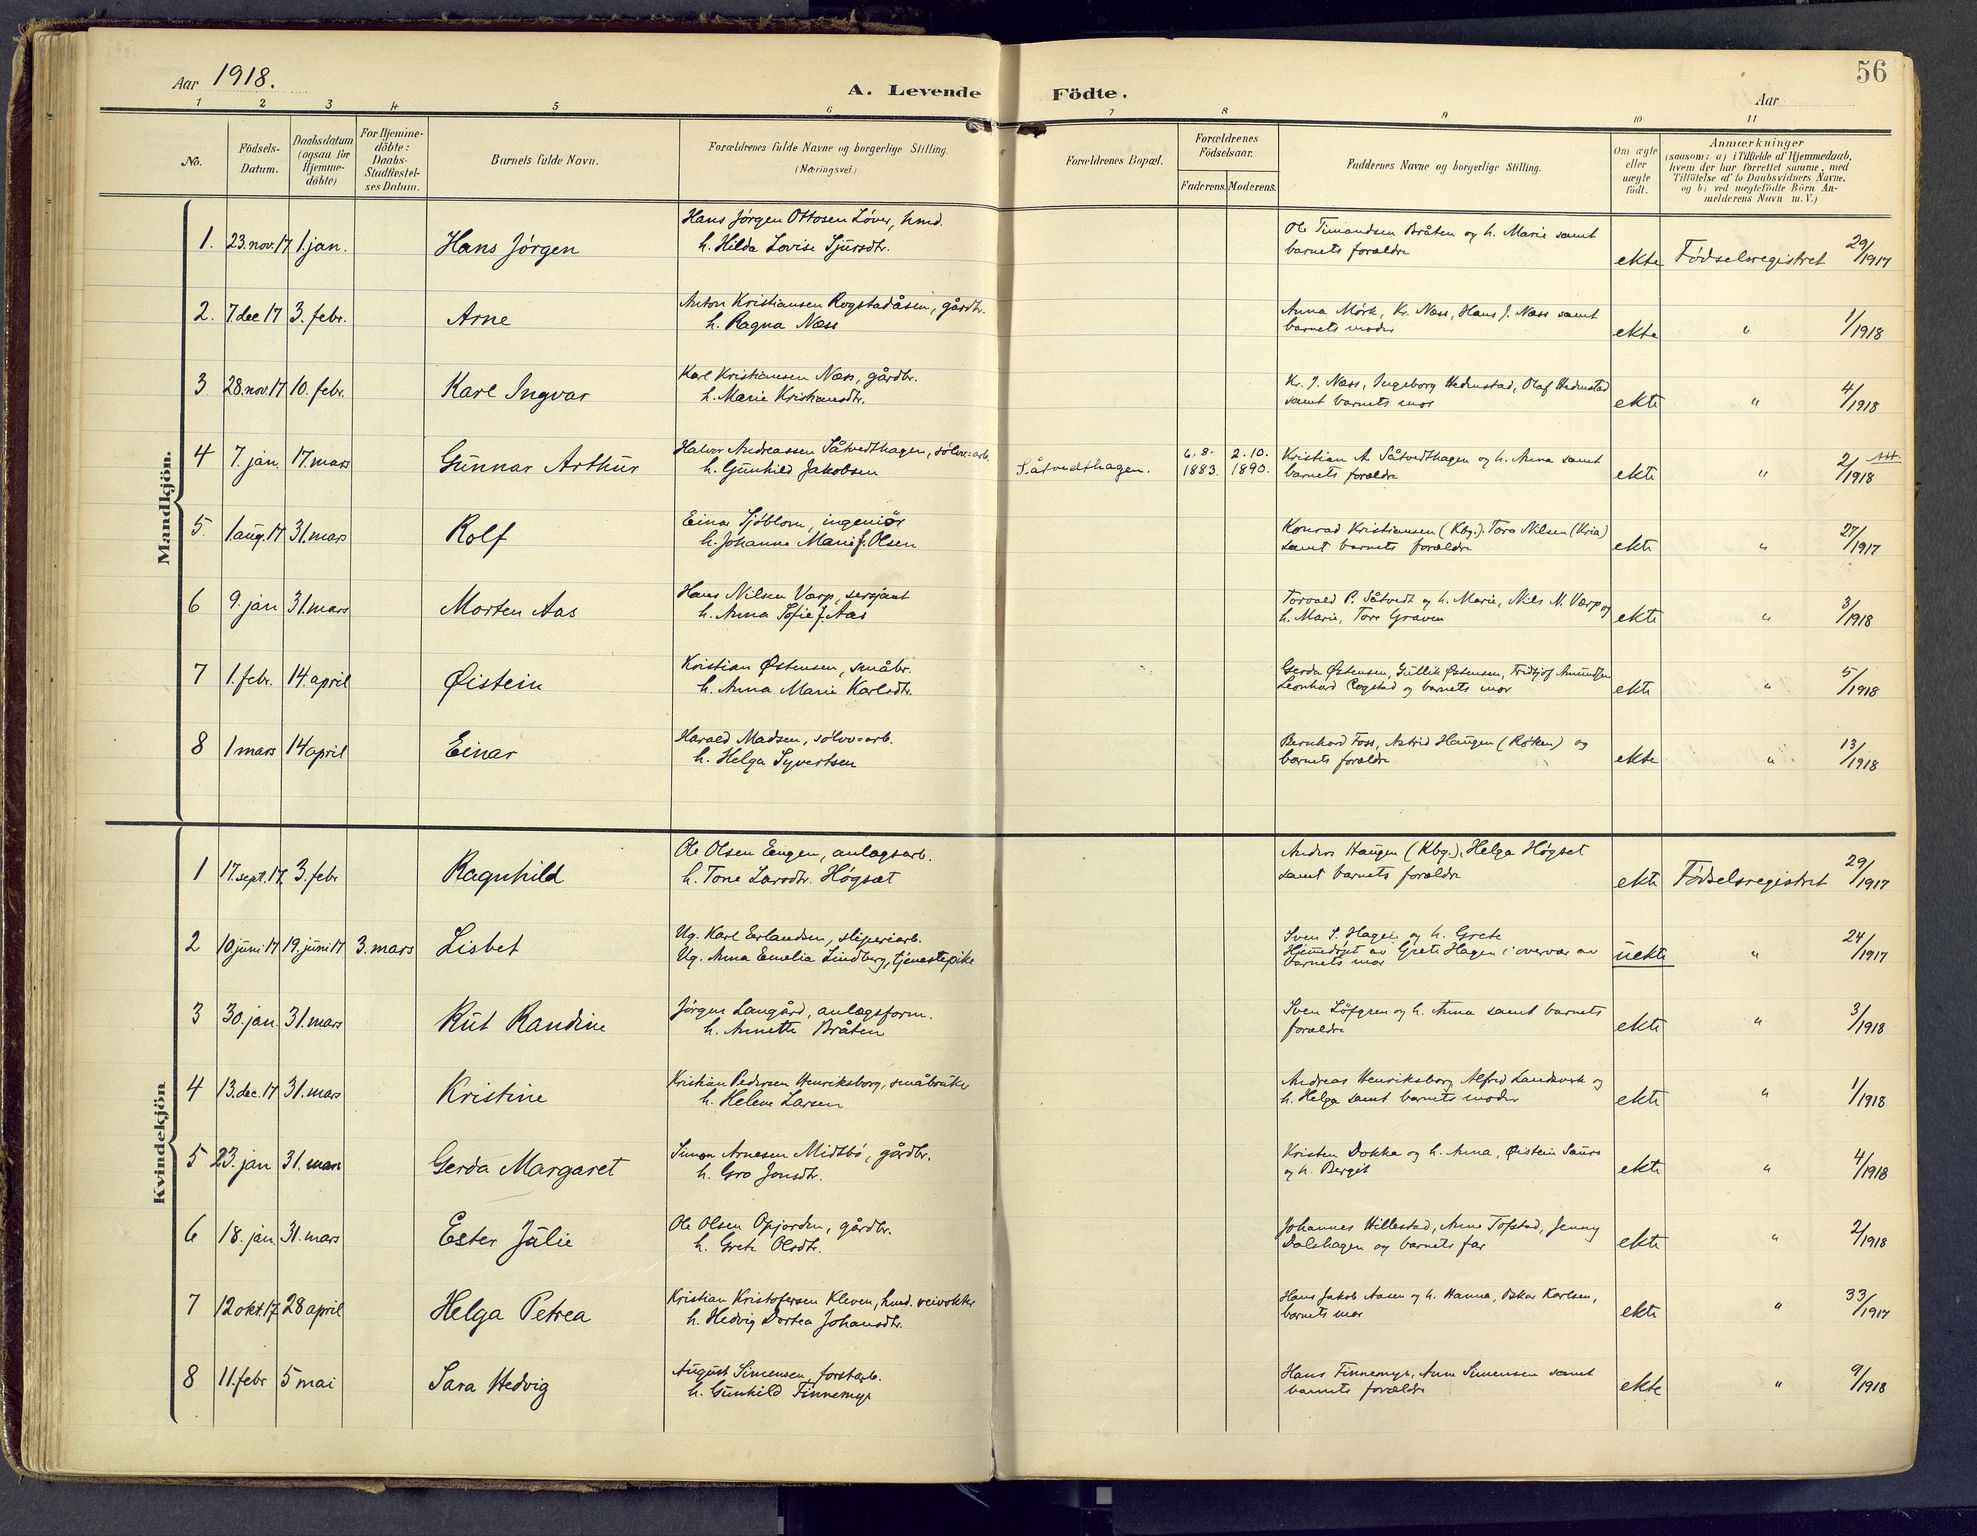 56
Aar 1918.
A. Levende Födte.
Aar
1 2 3 4 5 6 7 8 9 10 11
No.
Födsels-Datum.
Daabsdatum (ogsaa för Hjemme-döbte)
For Hjemme-döbte: Daabs-Stadfæstel-ses Datum.
Barnets fulde Navn.
Forældrenes fulde Navne og borgerlige Stilling.
(Næringsvei.)
Forældrenes Bopæl.
Forældrenes Födselsaar.
Faderens. Moderens.
Faddernes Navne og borgerlige Stilling.
Om ægte eller uægte födt.
Anmærkninger
(saasom: a) i Tilfælde af Hjemmedaab,
hvem der har forrettet samme, med
Tilföielse af to Daabsvidners Navne.
og b) ved uægtefödte Börn An-
melderens Navn m. V.)
Mandkjön.
1. 23. nov. 17 1. jan. Hans Jørgen Hans Jørgen Ottosen Løver, hmd. Ole Timandsen Bråten og h. Marie samt 29/1917
h. Hilda Lovise Sjursdtr. barnets forældre ekte Fødselsregistret
2. 7 dec 17 3. febr. Arne Anton Kristiansen Rogstadåsen, gårdbr. Anna Mørk, Kr. Næss, Hans J. Næss samt 1/1918
h. Ragna Næss barnets moder ekte "
3 28. nov. 17 10. febr. Karl Ingvar Karl Kristiansen Næss, gårdbr. Kr. J. Næss, Ingeborg Hedenstad, Olaf Hedenstad 4/1918
h. Marie Kristiansdtr. samt barnets mor ekte "
4 7. jan. 17. mars Gunnar Arthur Halvor Andreassen Såtvedthagen, sølvv=arb. Såtvedthagen. 6. 8. 1883. 2. 10. 1890. Kristian A. Såtvedthagen og h. Anna samt 2/1918 Att.
h. Gunhild Jakobsen barnets forældre ekte "
5. 1 aug. 17 31. mars Rolf Einar Sjøblom, ingeniør Konrad Kristiansen (Kbg.), Tora Nilsen (Kria) 27/1917
h. Johanne Marie f. Olsen samt barnets forældre ekte "
6 9. jan 31. mars Morten Aas Hans Nilsen Varp, sersjant Torvald P. Såtvedt og h. Marie, Nils N. Varp og 3/1918
h. Anna Sofie f. Aas h. Marie, Tore Graven ekte "
7 1. febr. 14 april Øistein Kristian Østensen, småbr. Gerda Østensen, Gullik Østensen, Fridtjof Amundsen 5/1918
h. Anna Marie Karlsdtr. Leonhard Rogstad og barnets mor ekte "
8 1 mars 14 april Einar Harald Madsen, sølvv=arb. Bernhard Foss, Astrid Haugen (Røken) og 13/1918
h. Helga Syvertsen barnets forældre ekte "
Kvindekjön
1 17. sept. 17. 3. febr Ragnhild Ole Olsen Engen, anlægsarb. Anders Haugen (Kbg.), Helga Høgset 29/1917
h. Tone Larsdtr. Høgsæt samt barnets forældre ekte Fødselsregistret
2 10 juni 17 19. juni 17 3. mars Lisbet Ug. Karl Erlandsen, sliperiarb. Sven S. Hagen og h. Grete 24/1917
Ug. Anna Emelia Lindberg, tjenestepike Hjemedøpt av Grete Hagen i overvær av uekte "
barnets mor
3 30. jan. 31. mars Rut Randine Jørgen Langård, anlægsform. Sven Löfgren og h. Anna samt barnets 3/1918
h. Annette Bråten forældre ekte "
4 13. dec. 17 31. mars Kristine Kristian Pedersen Henriksborg, småbruker Andreas Henriksborg Alfred Landsverk og 1/1918
h. Helene Larsen h. Helga samt barnets moder ekte "
5 23. jan 31. mars Gerda Margaret Simon Arnesen Midtbø, gårdbr. Kristen Dokka og h. Anna, Øistein Saurs 4/1918
h. Gro Jonsdtr. og h. Bergit ekte "
6 18. jan 31. mars Ester Julie Ole Olsen Opjorden, gårdbr. Johannes Hillestad, Anne Tofstad, Jenny 2/1918
h. Grete Olsdtr. Dalshagen og barnets far ekte "
7 12 okt. 17. 28 april Helga Petrea Kristian Kristofersen Kleven, hmd. veivokter Hans Jakob Aasen og h. Hanna, Oskar Karlsen, 33/1917
h. Hedvig Dortea Johansdtr. barnets mor ekte "
8 11. febr 5 mai Sara Hedvig August Simensen, forstarb. Hans Finnemyr, Anne Simensen samt 9/1918
h. Gunhild Finnemyr barnets forældre ekte "